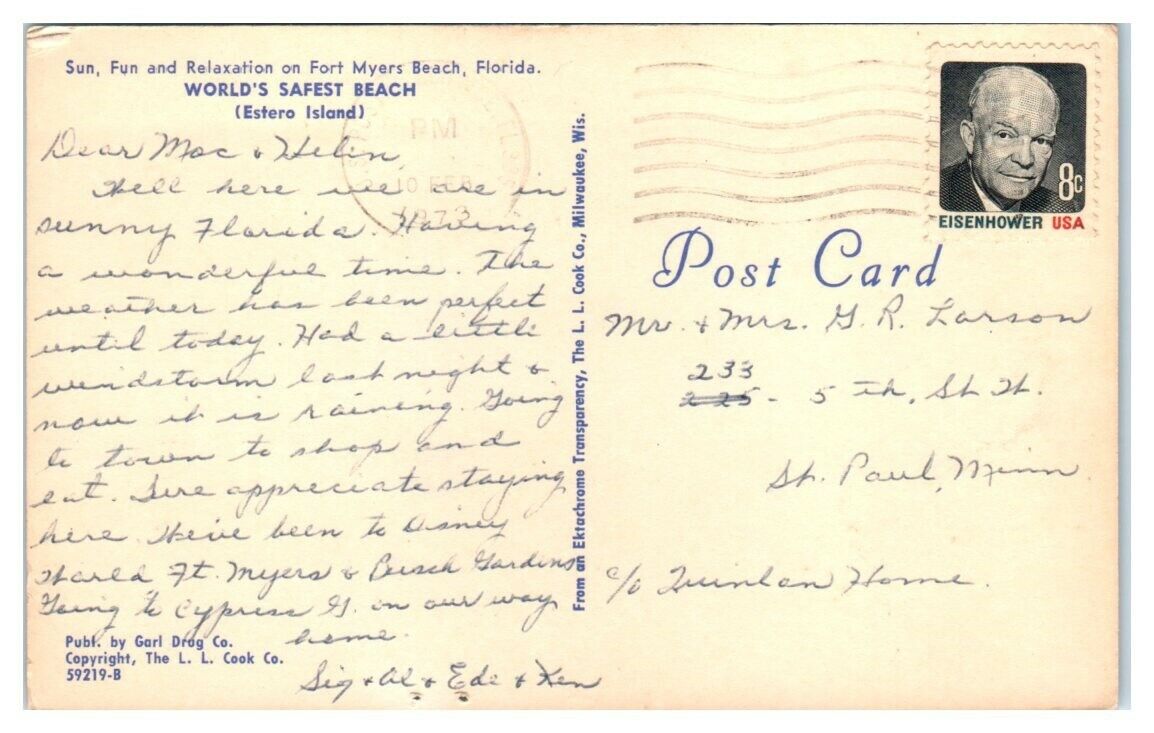 Sun, Fun and Relaxation on Fort Myers Beach, Florida.
WORLD'S SAFEST BEACH
(Estero Island)
Dear Mac & Helen
Well here we are in
sunny Florida. Having
a wonderful time. The
weather has been perfect
until today. Had a little
windstorm last night &
now it is raining. Going
to town to shop and
eat. Sure appreciate staying
here. We've been to Disney
World Ft. Myers & Busch Gardens
Going to Cypress G. on our way
home.
Sig & Al & Ede & Ken
Publ. by Garl Drug Co.
Copyright, The L. L. Cook Co.
59219-B
From an Ektachrome Transparency, The L. L. Cook Co., Milwaukee, Wis.
PM
10 FEB
1973
8c
EISENHOWER USA
Post Card
Mr. & Mrs. G. R. Larson
233
225 - 5th, St. W.
St. Paul, Minn
c/o Quinlan Home.